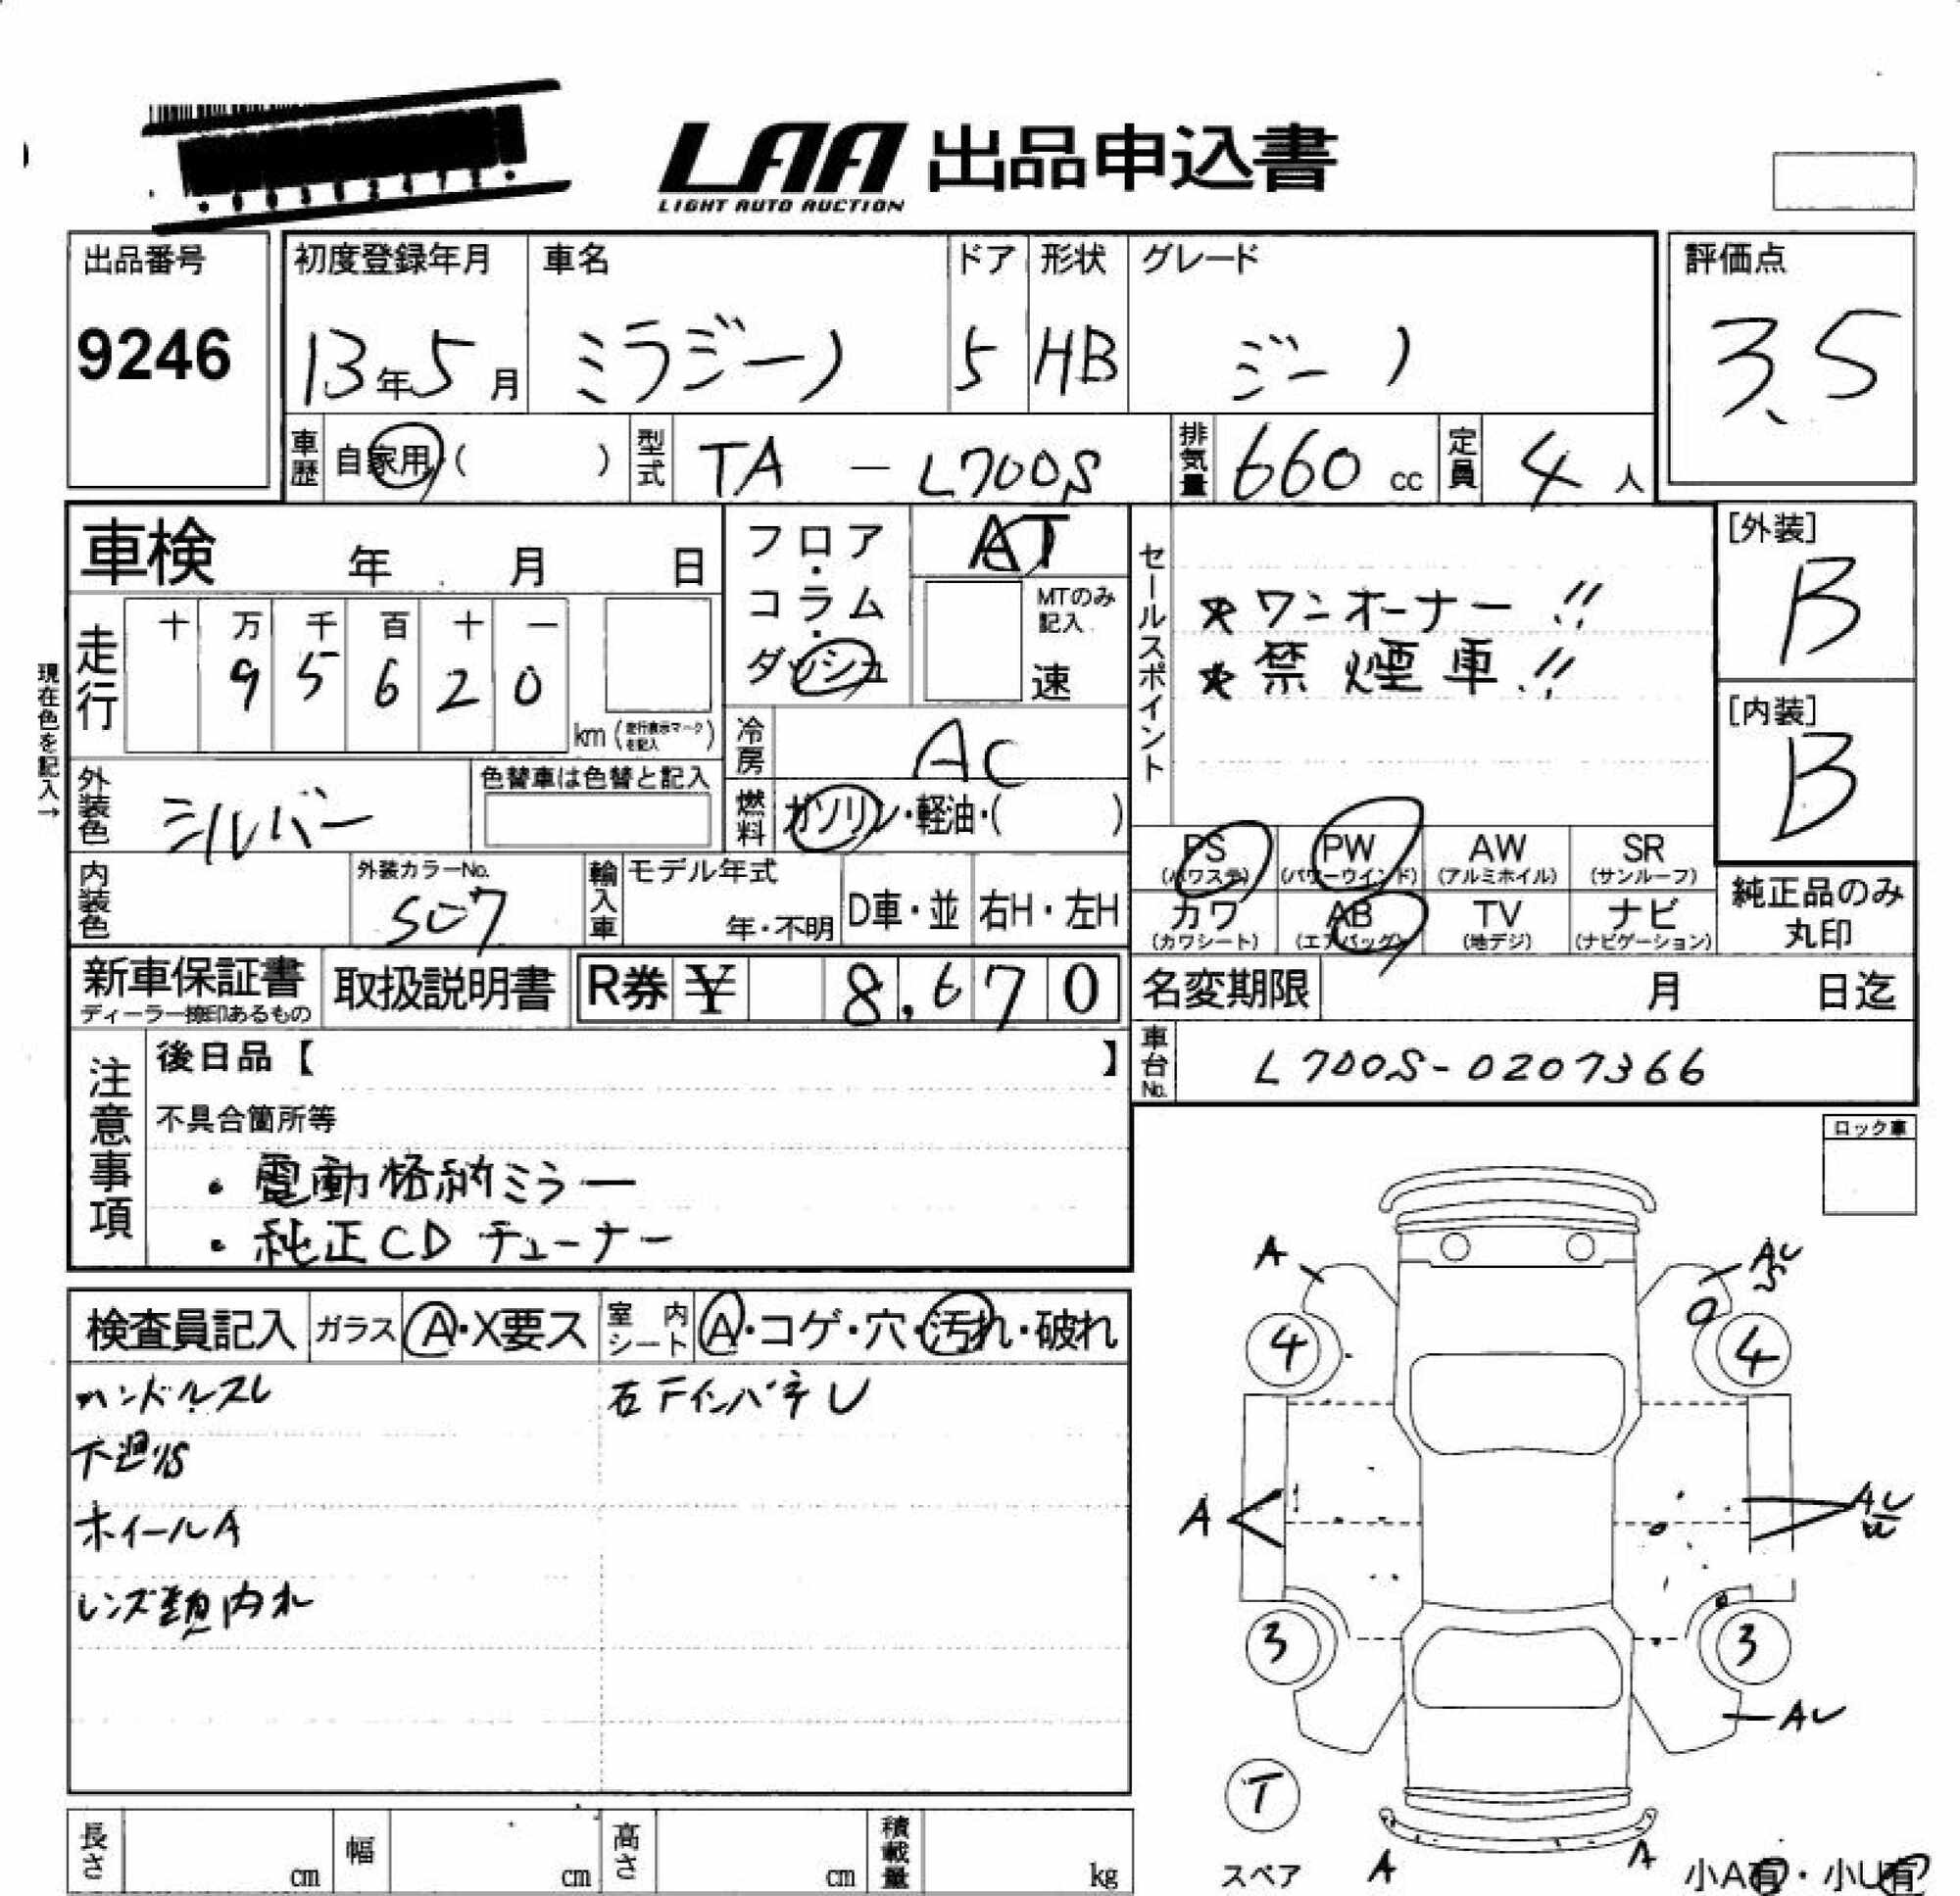 LAA 出品申込書
LIGHT AUTO AUCTION
出品番号
9246
初度登録年月 車名 ドア 形状 グレード
13年5月 ミラジーノ 5 HB ジーノ
評価点
3.5
車歴 自家用 ( ) 型式 TA - L700S 排気量 660 cc 定員 4 人
車検 年 月 日
フロア・コラム・ダッシュ AT
MTのみ記入
速
走行 十 万 千 百 十 一
9 5 6 2 0
km (走行表示マークを記入)
現在色を記入→
冷房 AC
外装色 シルバー 色替車は色替と記入
燃料 ガソリン・軽油・( )
内装色 外装カラーNo. S07
輸入車 モデル年式 年・不明 D車・並 右H・左H
セールスポイント
★ワンオーナー!!
★禁煙車!!
[外装]
B
[内装]
B
PS (パワステ) PW (パワーウインド) AW (アルミホイル) SR (サンルーフ)
カワ (カワシート) AB (エアバッグ) TV (地デジ) ナビ (ナビゲーション)
純正品のみ丸印
新車保証書 取扱説明書 R券 ¥ 8,670
ディーラー捺印あるもの
名変期限 月 日迄
車台No. L700S-0207366
注意事項
後日品【 】
不具合箇所等
・電動格納ミラー
・純正CDチューナー
ロック車
検査員記入 ガラス A・X要ス 室内シート A・コゲ・穴・汚れ・破れ
ハンドルスレ 右FインパネU
下廻りS
ホイールA
レンズ類内
A AU
S
4 4
A AU
3 3
AU
T
スペア A A 小A有・小U有
長さ cm 幅 cm 高さ cm 積載量 kg